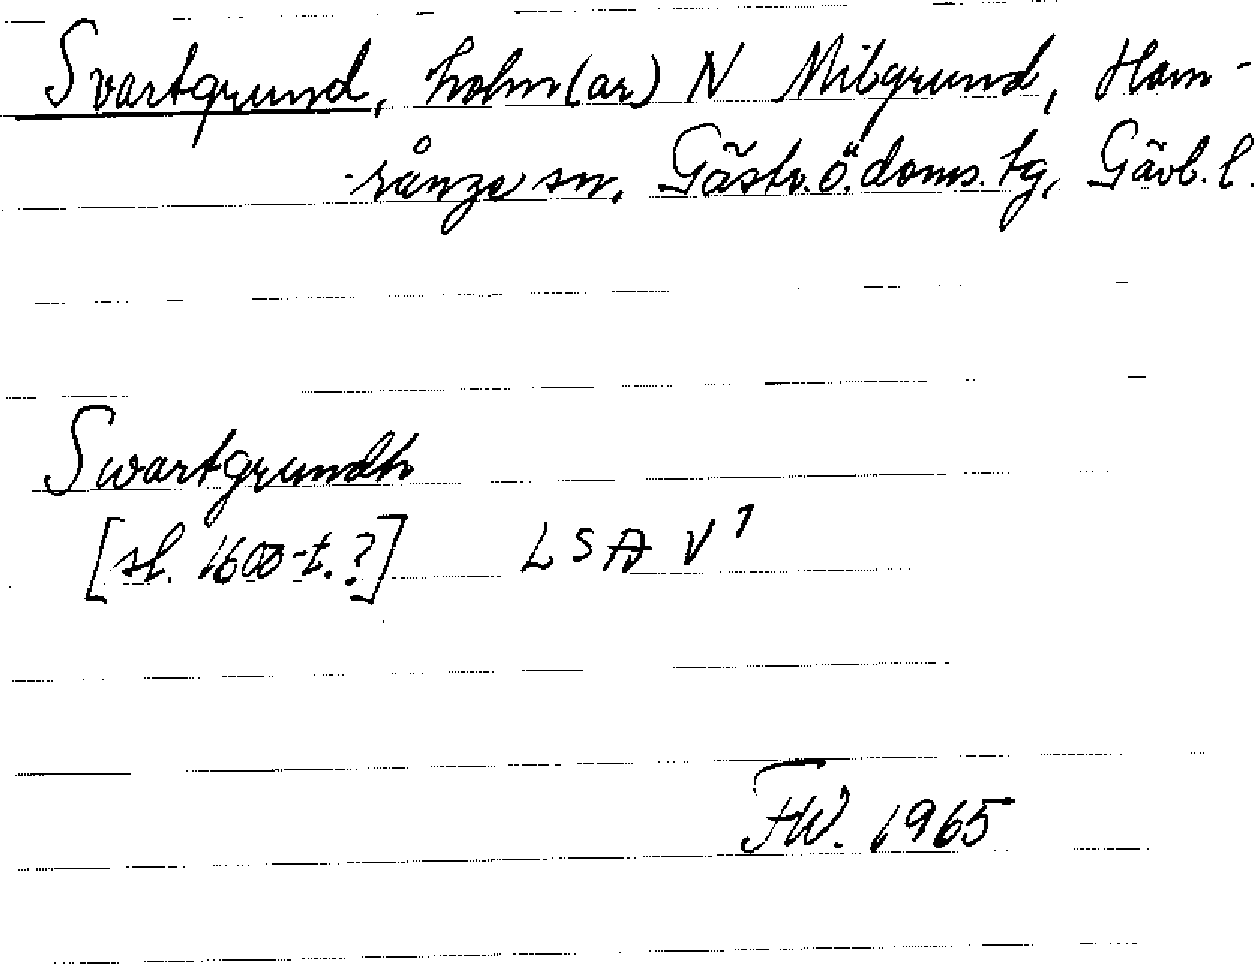 Svartgrund, holm(ar) N Milgrund, Ham-
rånge sn, Gästr. ö. doms. tg, Gävl. l.
Swartgrundh
[sl. 1600-t.?] LSA V¹
FW. 1965